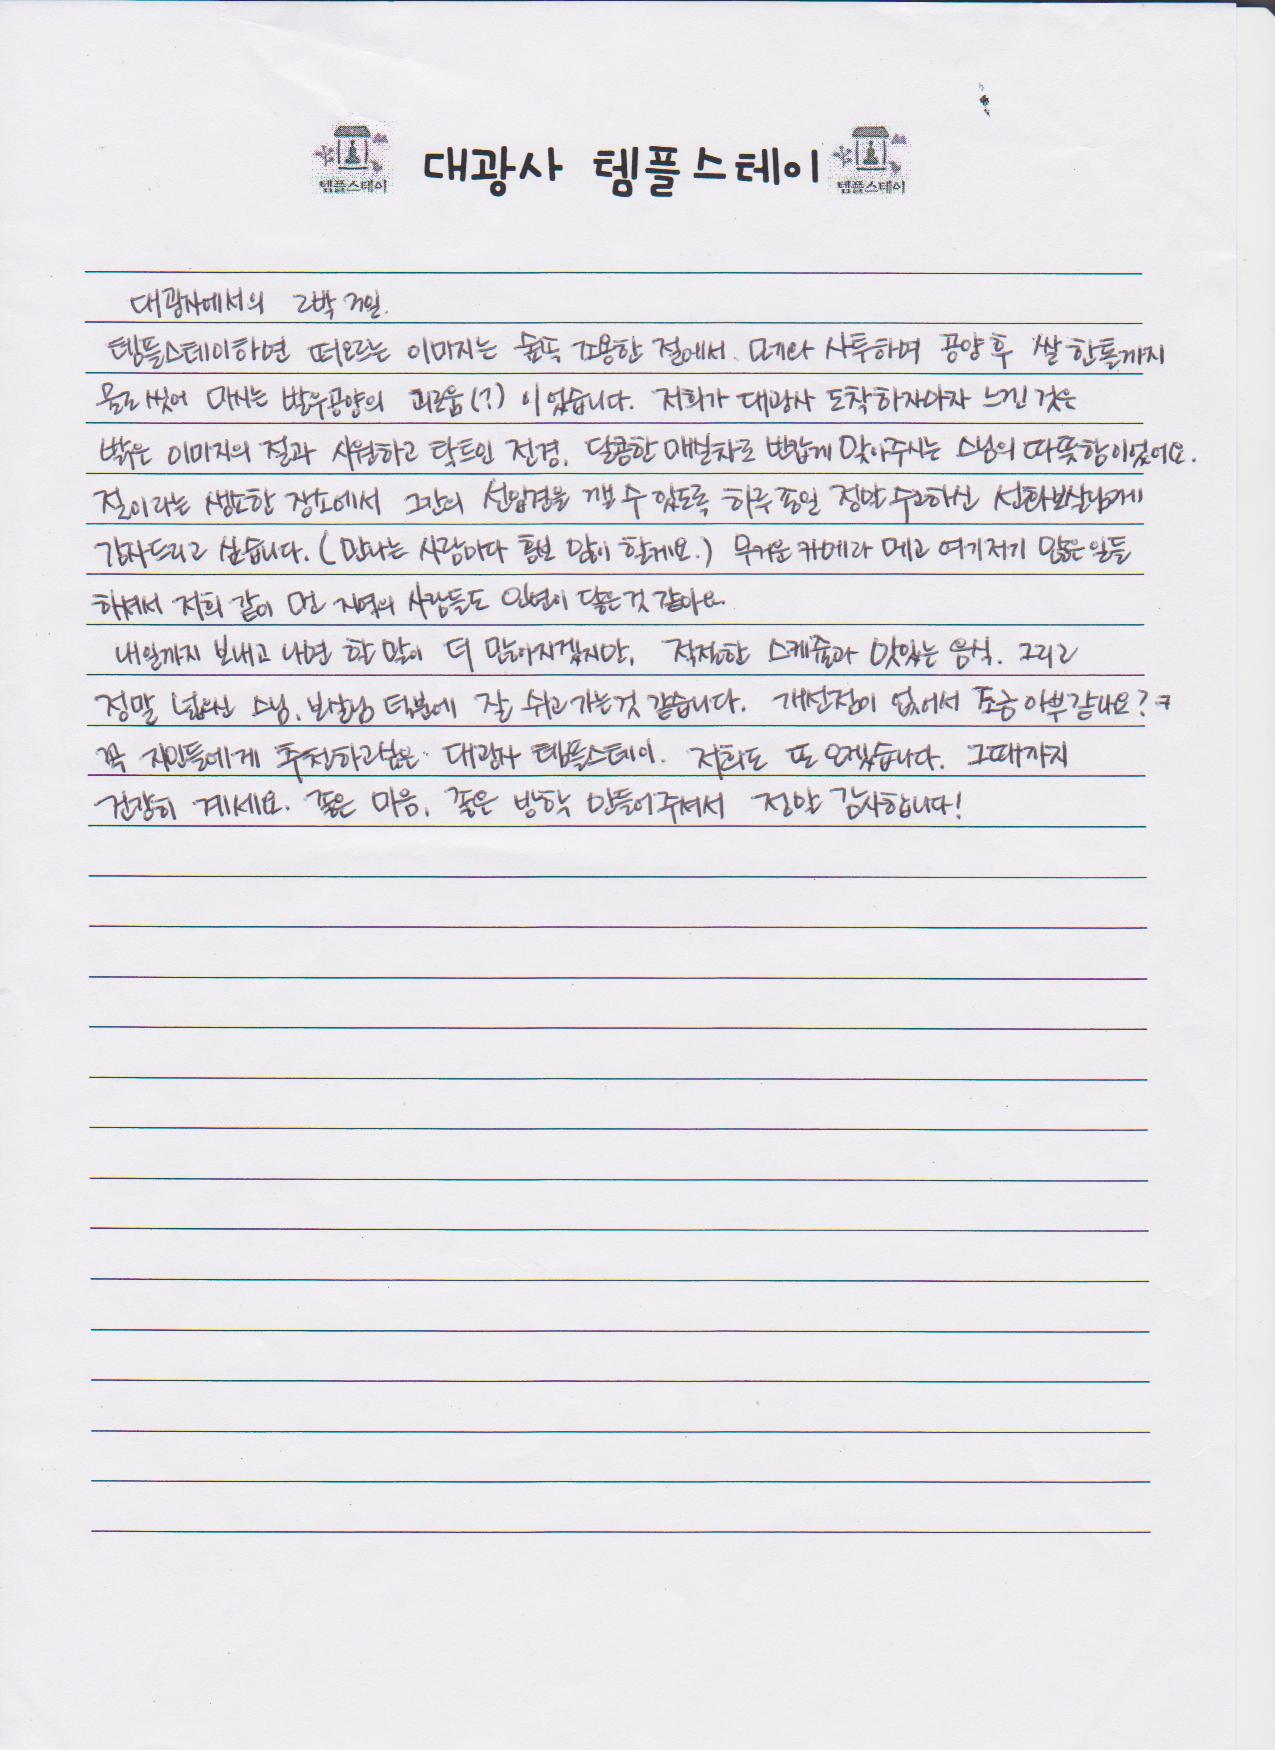 대광사 템플스테이
템플스테이
템플스테이
대광사에서의 2박 3일.
템플스테이하면 떠오르는 이미지는 숲속 조용한 절에서. 모기와 사투하며 공양 후 쌀 한톨까지
물로 씻어 마시는 발우공양의 괴로움(?) 이었습니다. 저희가 대광사 도착하자마자 느낀 것은
밝은 이미지의 절과 시원하고 탁트인 전경, 달콤한 매실차로 반갑게 맞아주시는 스님의 따뜻함이었어요.
절이라는 생소한 장소에서 그간의 선입견을 깰 수 있도록 하루 종일 정말 수고하신 선화보살님께
감사드리고 싶습니다. (만나는 사람마다 홍보 많이 할게요.) 무거운 카메라 메고 여기저기 많은 일들
하셔서 저희 같이 먼 지역의 사람들도 인연이 닿은것 같아요.
내일까지 보내고 나면 할 말이 더 많아지겠지만, 적절한 스케쥴과 맛있는 음식. 그리고
정말 스님, 보살님 덕분에 잘 쉬고 가는것 같습니다. 개선점이 없어서 조금 아부같나요? ㅋ
꼭 지인들에게 추천하고싶은 대광사 템플스테이. 저희도 또 오겠습니다. 그때까지
건강히 계세요. 좋은 마음, 좋은 방학 만들어주셔서 정말 감사합니다!